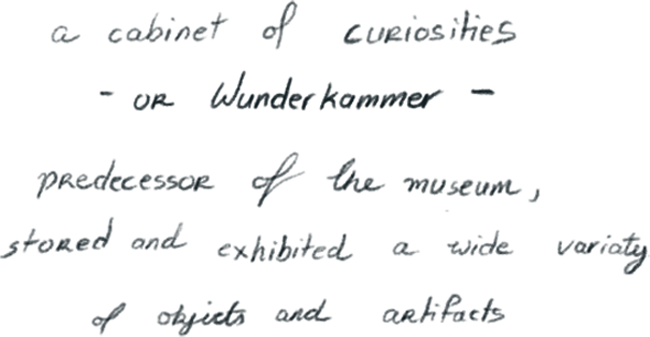 a cabinet of curiosities
- or Wunderkammer -
predecessor of the museum,
stored and exhibited a wide variaty
of objects and artifacts